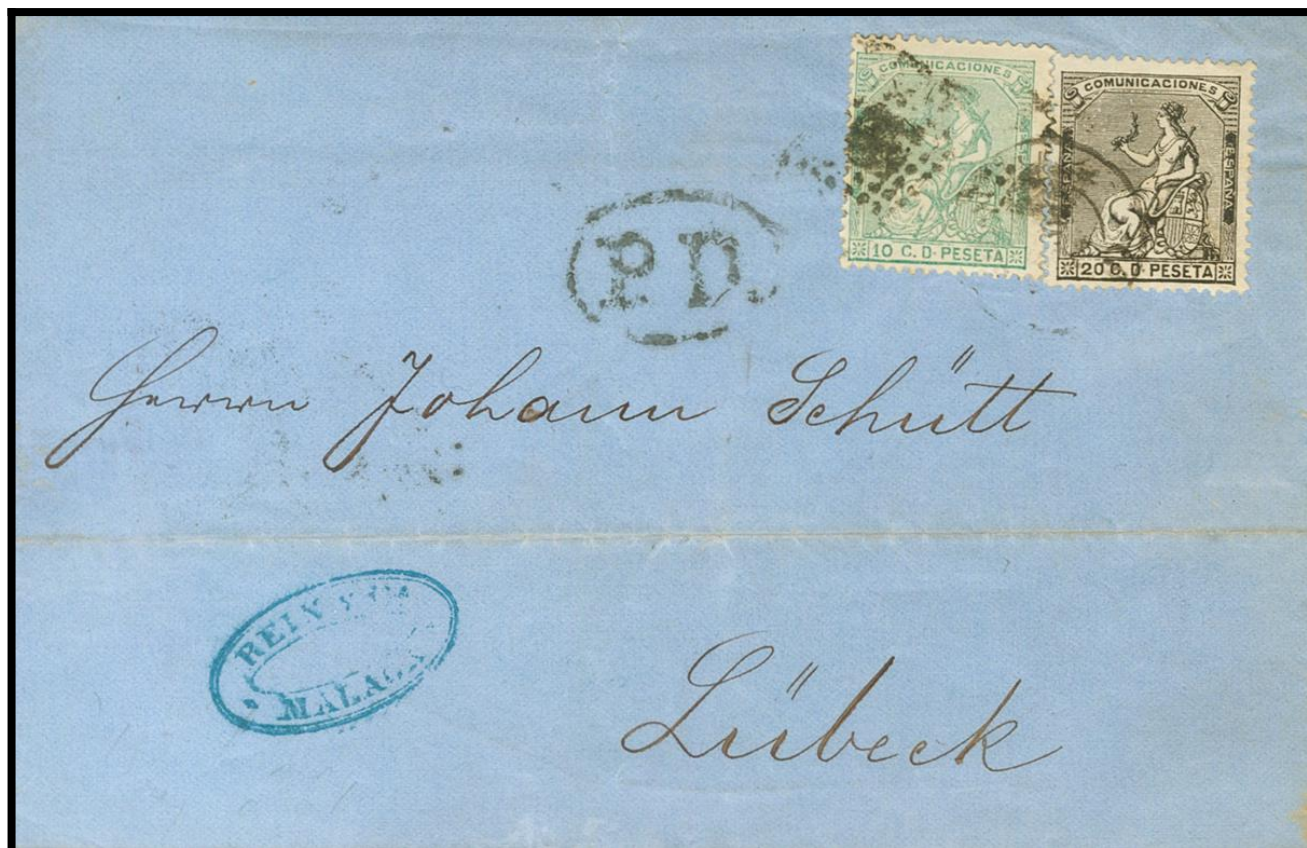 COMUNICACIONES
10 C. D. PESETA
COMUNICACIONES
ESPAÑA
ESPAÑA
20 C. D. PESETA
P.D.
Herrn Johann Schütt
REIN Y Cª
MALAGA
Lübeck